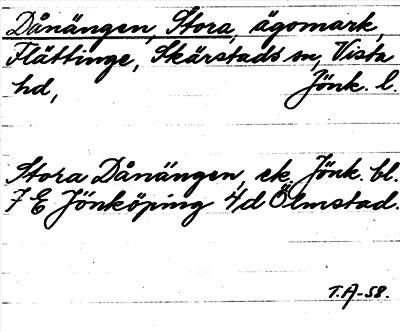 Dånängen, Stora, ägomark,
Flättinge, Skärstads sn, Vista
hd, Jönk. l.
Stora Dånängen, ek. Jönk. bl.
7 E Jönköping 4/d Ölmstad.
T.A-58.